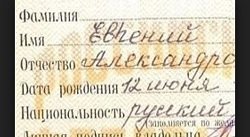 Фамилия
Имя Евгений
Отчество Александро
Дата рождения 12 июня
Национальность русский
(заполняется по жела
Личная подпись владельц